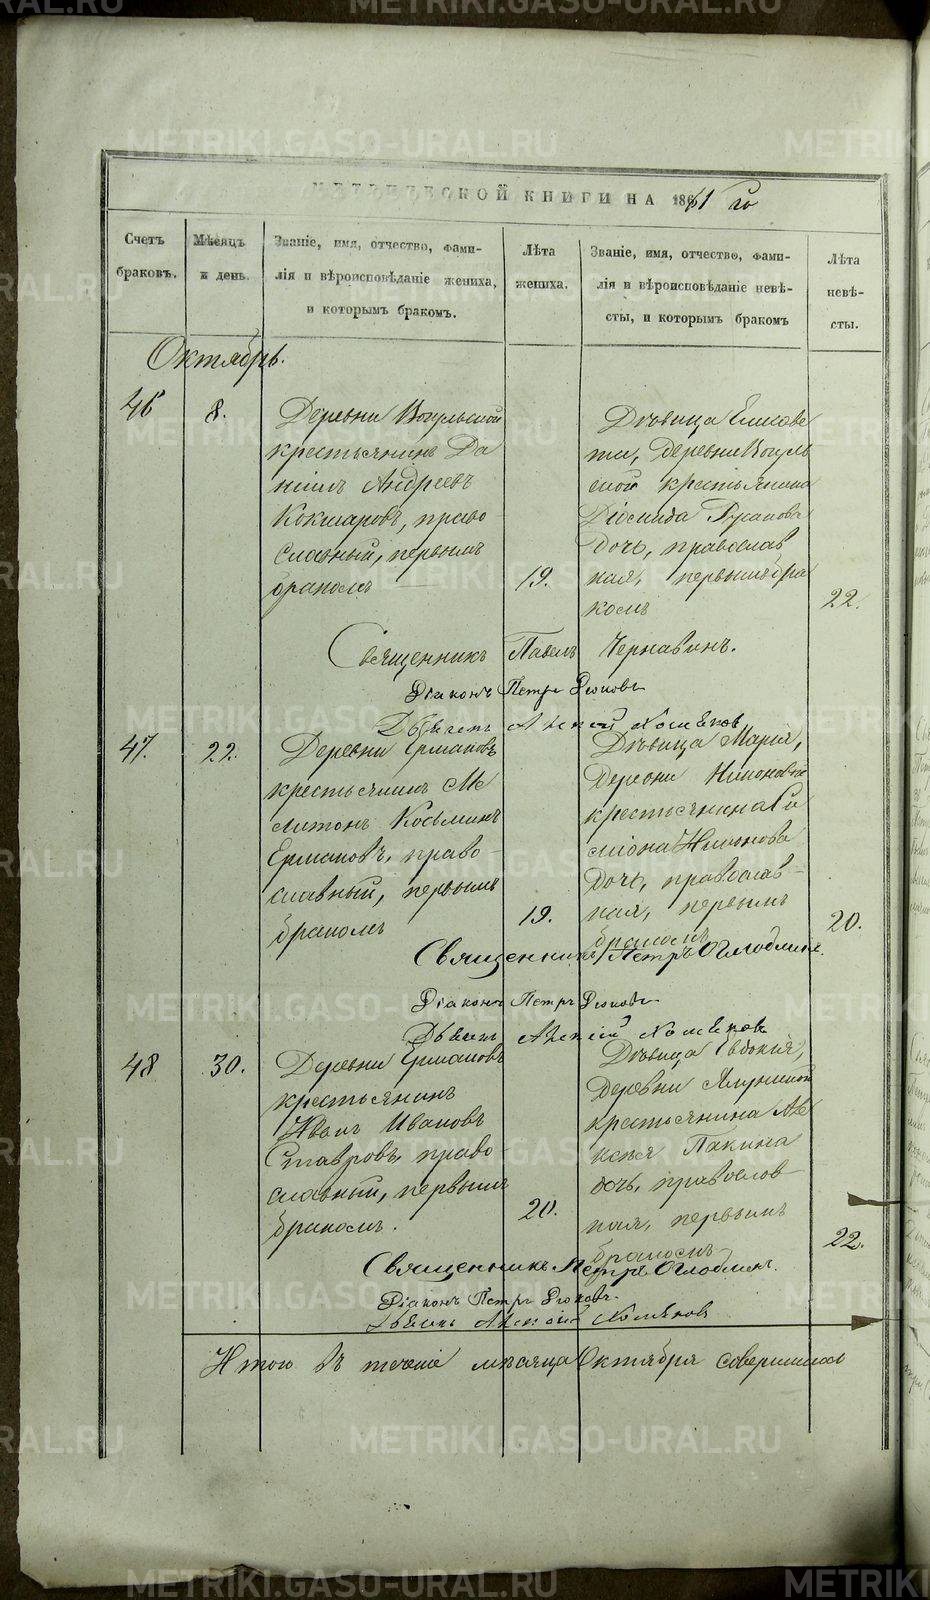 МЕТРИЧЕСКОЙ КНИГИ НА 1861 го
Счетъ браковъ.
Мѣсяцъ и день.
Званіе, имя, отчество, фами-
лія и вѣроисповѣданіе жениха,
и которымъ бракомъ.
Лѣта жениха.
Званіе, имя, отчество, фами-
лія и вѣроисповѣданіе невѣ-
сты, и которымъ бракомъ
Лѣта невѣ-
сты.
Октябрь.
46
8.
Деревни Вогульской
крестьянинъ Да
ніилъ Андреевъ
Кокшаровъ, право
славный, первымъ
бракомъ
19.
Дѣвица Елисаве
та, деревни Вогуль
ской крестьянина
Діомида
дочь, православ
ная, первымъ бра
комъ
22.
Священникъ Павелъ Чернавинъ.
Діаконъ Петръ Дюковъ
Дьячекъ Алексій Хомяковъ
47.
22.
Деревни Ермаковъ
крестьянинъ Ме
литонъ Козьминъ
Ермаковъ, право-
славный, первымъ
бракомъ
19.
Дѣвица Марія,
Деревни
крестьянина Си
міона
дочь, православ-
ная, первымъ
бракомъ
20.
Священникъ Петръ
Діаконъ Петръ Дюковъ
Дьячекъ Алексій Хомяковъ
48
30.
Деревни Ермаковъ
крестьянинъ
Иванъ Ивановъ
Ставровъ, право
славный, первымъ
бракомъ.
20.
Дѣвица Евдокія,
деревни
крестьянина Але
ксѣя Пакина
дочь, православ-
ная, первымъ
бракомъ
22.
Священникъ Петръ
Діаконъ Петръ Дюковъ
Дьячекъ Алексій Хомяковъ
Итого въ теченіе мѣсяца Октября совершилось
METRIKI.GASO-URAL.RU